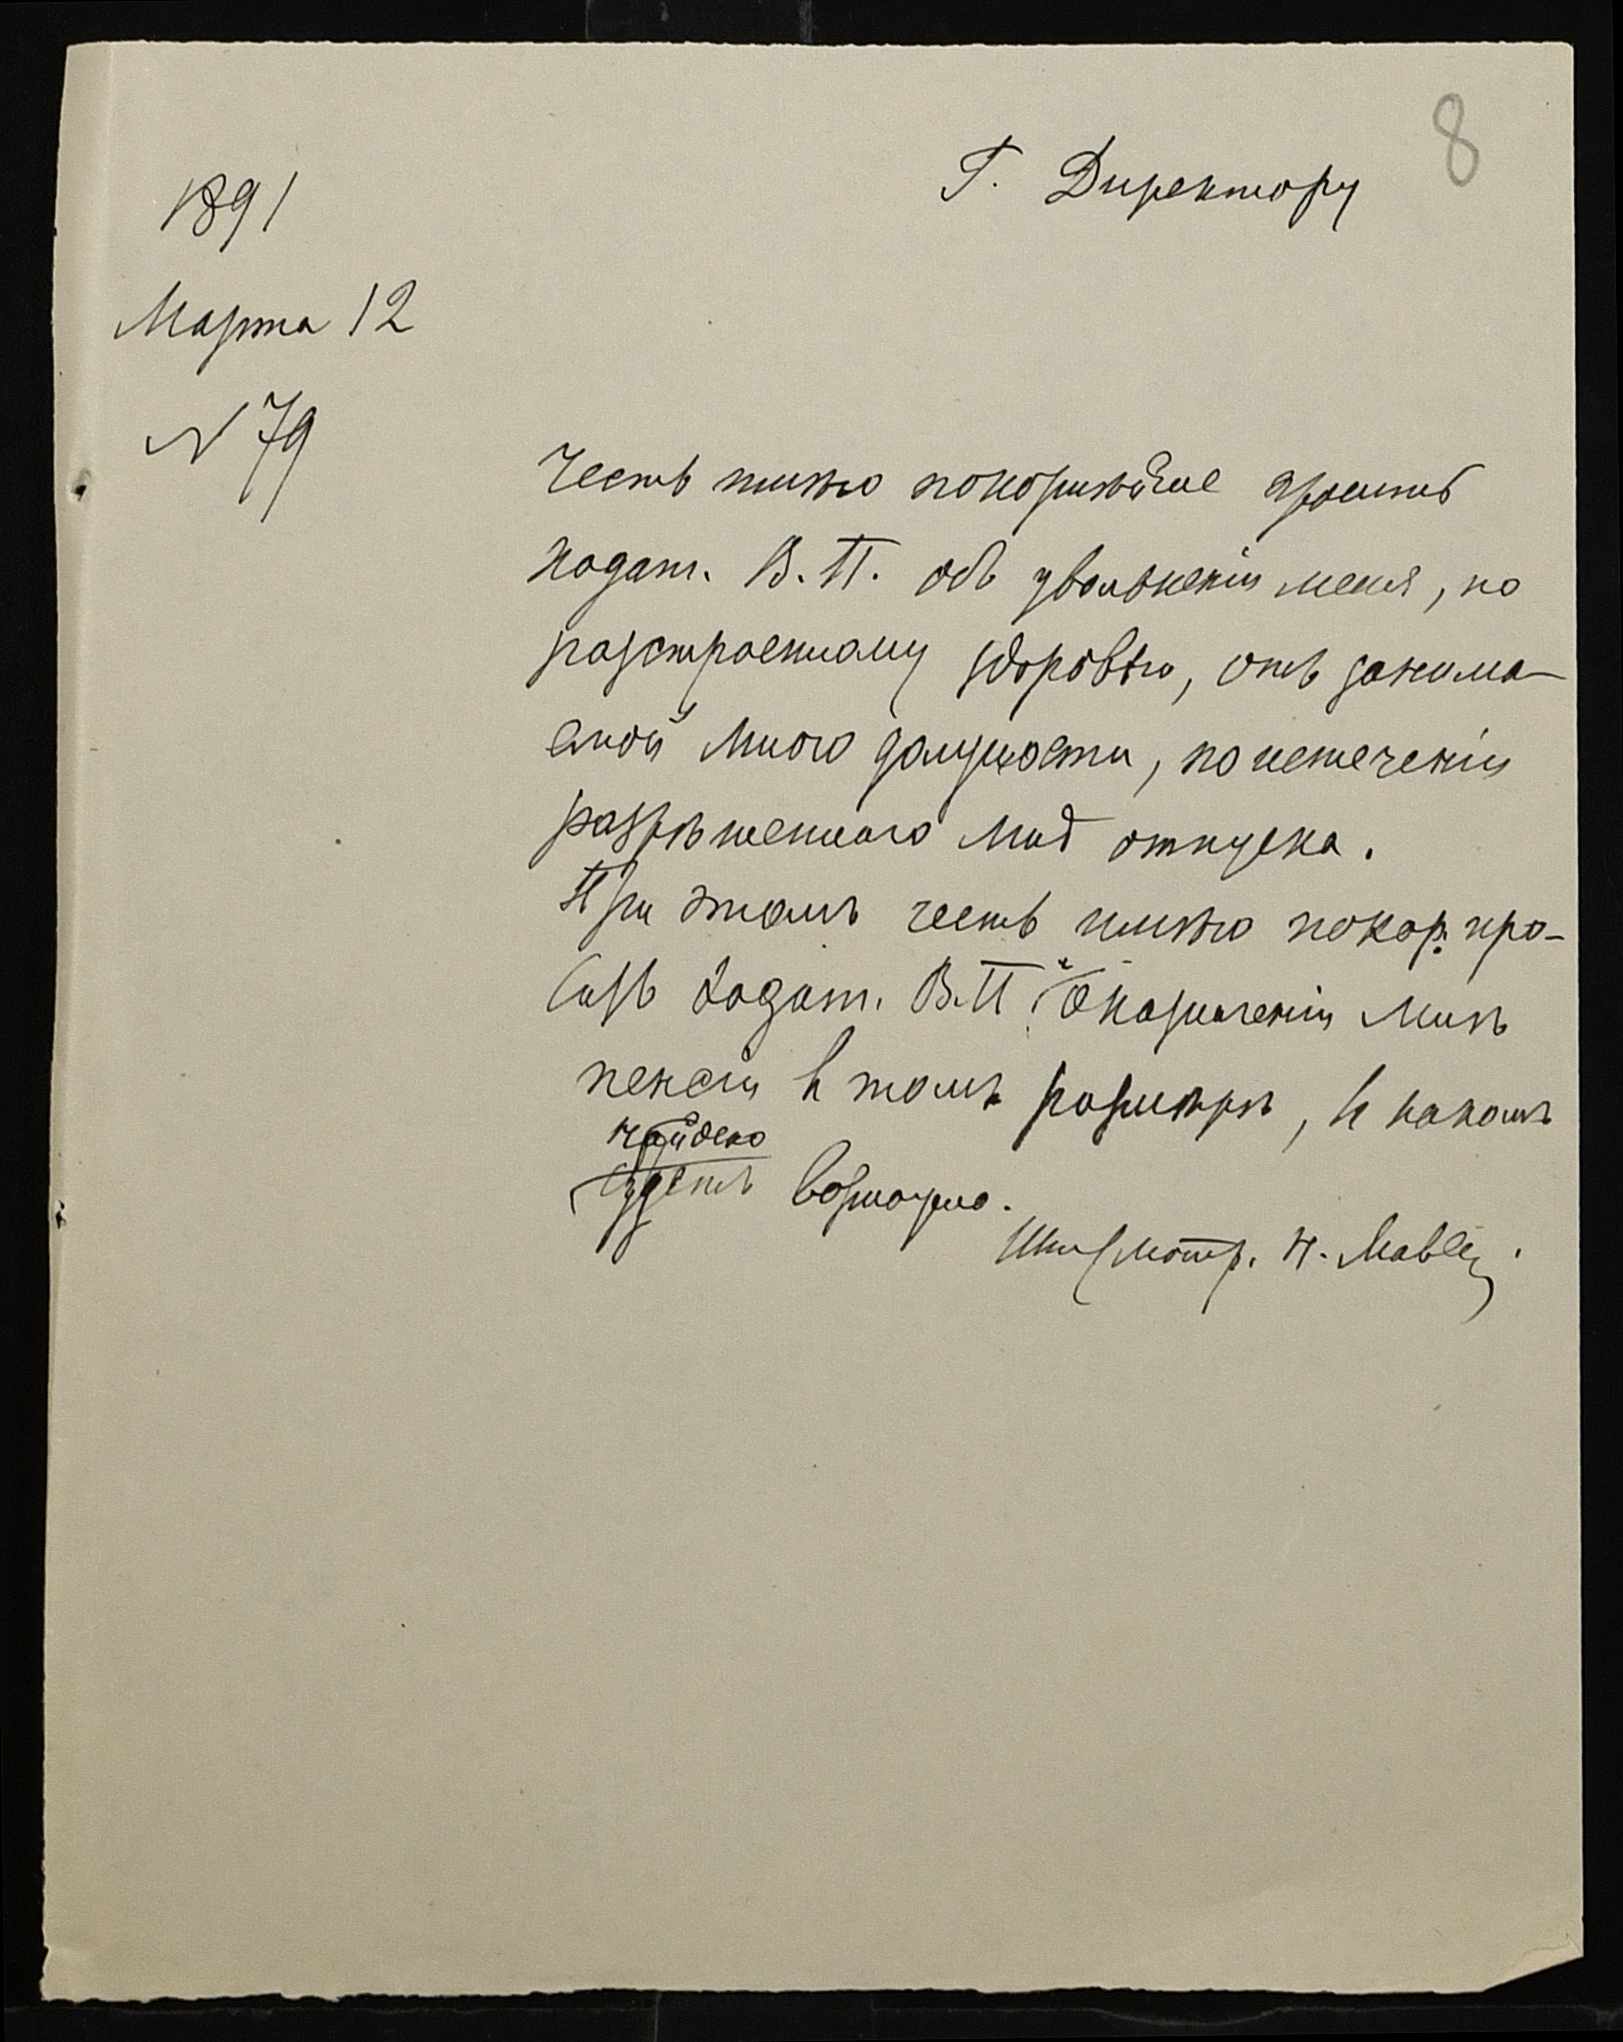 8
Г. Директору
1891
Марта 12
N 79
Честь имѣю покорнѣйше просить
ходат. В. П. объ увольненіи меня, по
разстроенному здоровью, отъ занима-
емой мною должности, по истеченіи
разрѣшеннаго мнѣ отпуска.
При этомъ честь имѣю покор. про-
сить ходат. В. П. о назначеніи мнѣ
пенсіи в томъ размѣрѣ, в какомъ
найдено
будетъ возможно.
Шт. Смотр. Н.